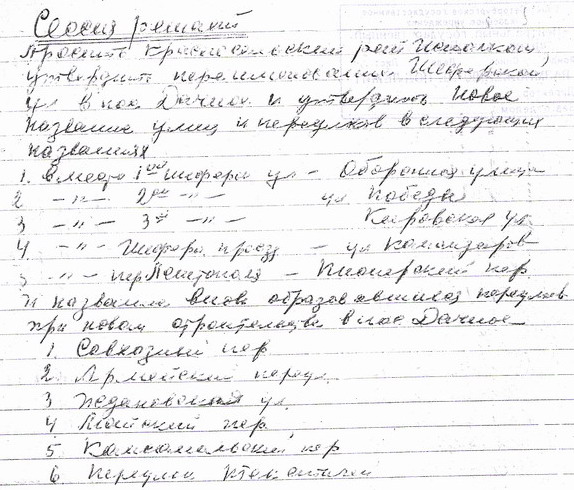 Сессия решает
Просить Красносельский рай Исполком
утвердить переименование
ул в пос Дачное и утвердить новое
название улиц и переулков в следующих
названиях
1. вместо 1ой шоферн ул – Оборонная улица
2 – " – 2ой – " – ул Победы
3 – " – 3й – " – Кировская ул.
4 – " – Шоферн проезд – ул
5 – " – пер – Пионерский пер
И название вновь образовавшихся переулков
при новом строительстве в пос Дачное
1. Совхозный пер
2. Армейский переул.
3 Ждановская ул.
4 Майский пер,
5 Камсамольский пер
6 Переулок